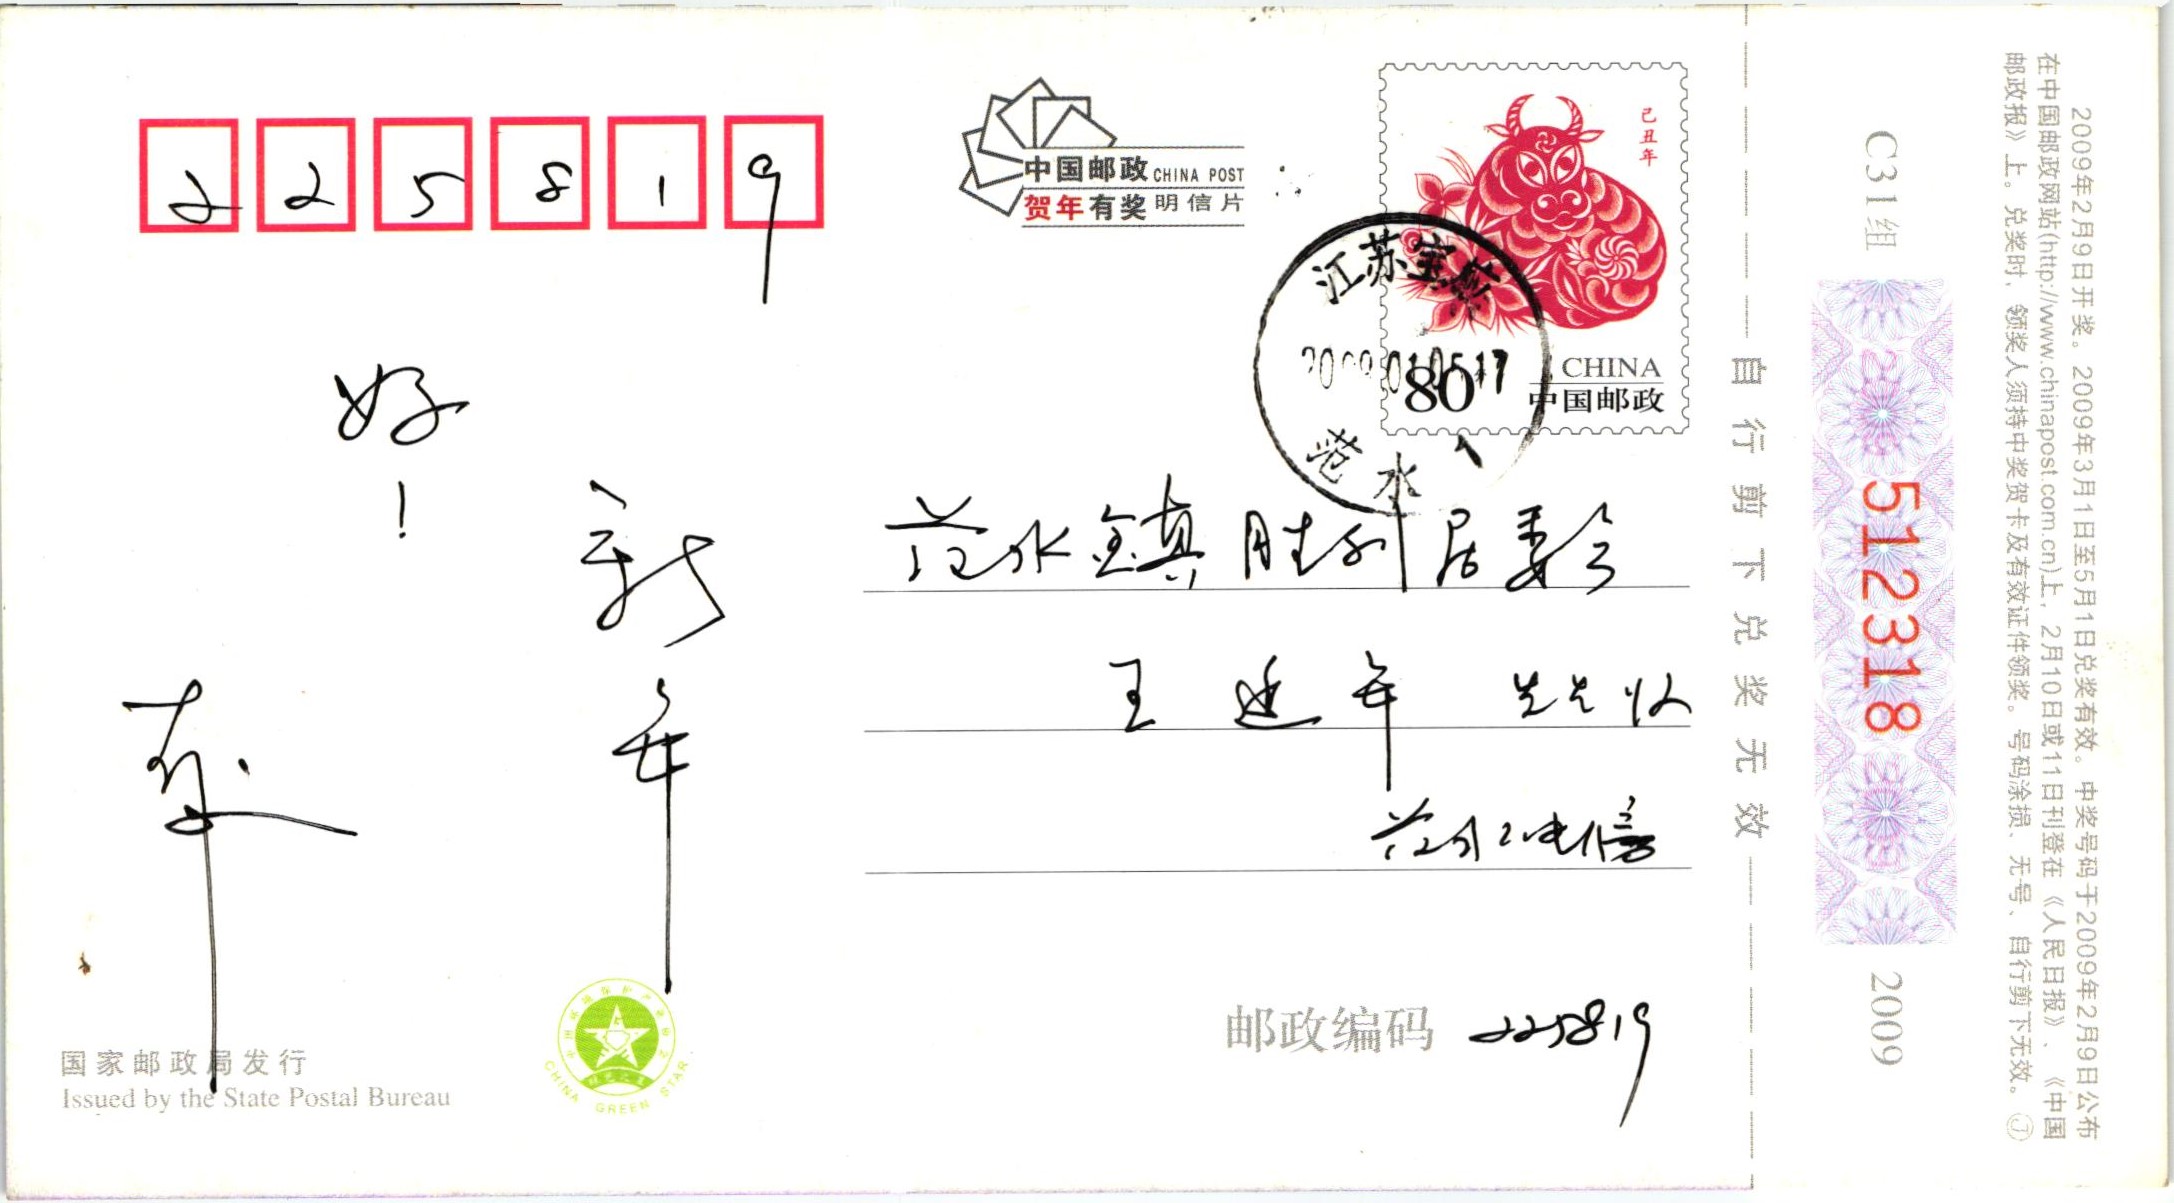 225819
中国邮政 CHINA POST
贺年有奖明信片
己丑年
80
CHINA
中国邮政
江苏宝应
2009.01.05.17
范水
新年
好!
范水镇胜利居委会
王延年 先生收
范水电信
邮政编码 225819
国家邮政局发行
Issued by the State Postal Bureau
CHINA GREEN STAR
自行剪下兑奖无效
C31组
512318
2009
2009年2月9日开奖。2009年3月1日至5月1日兑奖有效。中奖号码于2009年2月9日公布
在中国邮政网站(http://www.chinapost.com.cn)上,2月10日或11日刊登在《人民日报》、《中国
邮政报》上。兑奖时,领奖人须持中奖贺卡及有效证件领奖。号码涂损、无号、自行剪下无效。Ⓙ